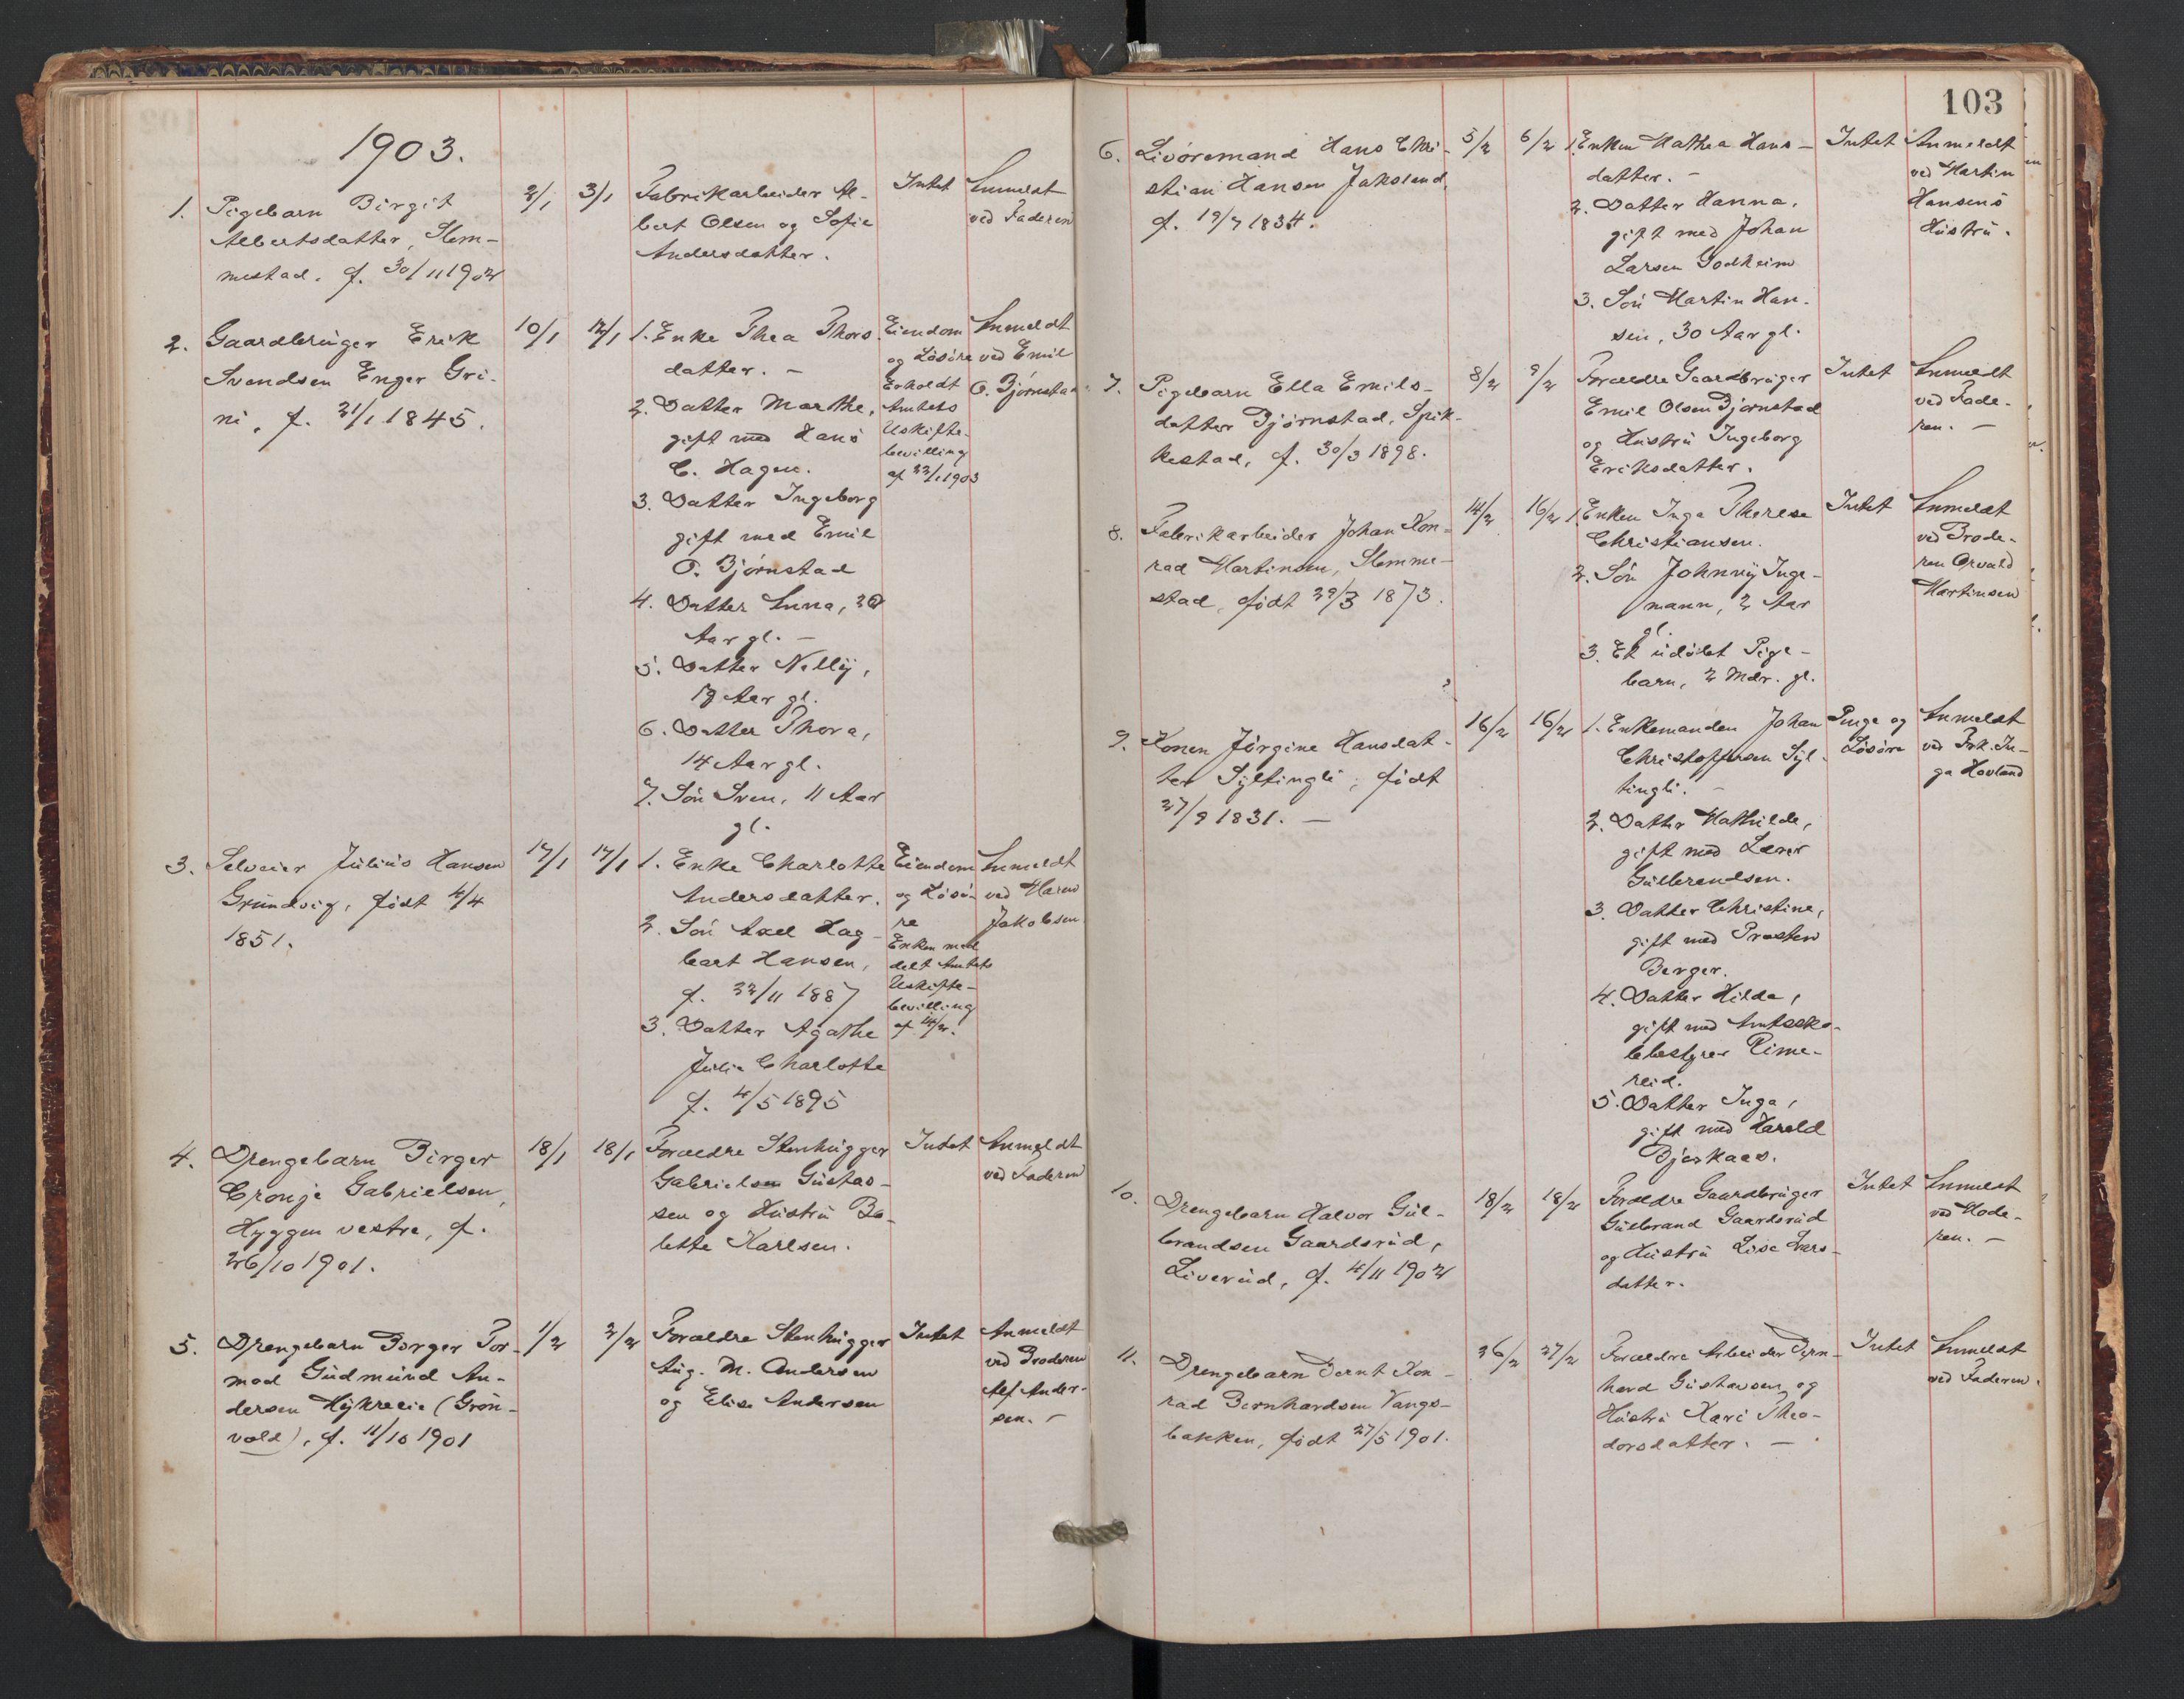 1903.
1. Pigebarn Birgit
Albertsdatter, Slem-
mestad. f. 30/11 1902
2/1 3/1
Fabrikarbeider Al-
bert Olsen og Sofie
Andersdatter.
Intet
Anmeldt
ved Faderen
2. Gaardbruger Erik
Svendsen Enger Gri-
ni, f. 21/1 1845.
10/1 12/1
1. Enke Thea Thors-
datter. -
2. Datter Marthe,
gift med Hans
C. Hagen.
3. Datter Ingeborg
gift med Emil
O. Bjørnstad
4. Datter Anna, 20
Aar gl. -
5. Datter Nelly,
19 Aar gl.
6. Datter Thora,
14 Aar gl.
7. Søn Sven, 11 Aar
gl.
Eiendom
og Løsøre
Erholdt
Amtets
Uskifte-
bevilling
af 22/1 1903
Anmeldt
ved Emil
O. Bjørnstad
3. Selveier Julius Hansen
Grundvig, født 4/4
1851.
17/1 17/1
1. Enke Charlotte
Andersdatter.
2. Søn Axel Hag-
bart Hansen,
f. 22/11 1887
3. Datter Agathe
Julie Charlotte
f. 4/5 1895
Eiendom
og Løsø-
re
Enken med-
delt Amtets
Uskifte-
bevilling
af 14/2.
Anmeldt
ved Maren
Jakobsen
4. Drengebarn Birger
Cronje Gabrielsen,
Hyggen vestre, f.
26/10 1901.
18/1 18/1
Forældre Stenhugger
Gabrielsen Gustav-
sen og Hustru Bo-
lette Karlsen.
Intet
Anmeldt
ved Faderen
5. Drengebarn Borger Tor-
mod Gudmund An-
dersen Hykreie (Grøn-
vold), f. 11/10 1901
1/2 2/2
Forældre Stenhugger
Aug. M. Andersen
og Elise Andersen
Intet
Anmeldt
ved Broderen
Alf Ander-
sen. -
103
6. Livøremand Hans Chri-
stian Hansen Jakslund,
f. 19/7 1834.
5/2 6/2
1. Enken Mathea Hans-
datter. -
2. Datter Hanna,
gift med Johan
Larsen Godheim
3. Søn Martin Han-
sen, 30 Aar gl.
Intet
Anmeldt
ved Martin
Hansens
Hustru.
7. Pigebarn Ella Emils-
datter Bjørnstad, Spik-
kestad, f. 30/3 1898.
8/2 9/2
Forældre Gaardbruger
Emil Olsen Bjørnstad
og Hustru Ingeborg
Eriksdatter.
Intet
Anmeldt
ved Fade-
ren. -
8. Fabrikarbeider Johan Kon-
rad Martinsen, Slemme-
stad, født 29/3 1873.
14/2 16/2
1. Enken Inga Therese
Christiansen.
2. Søn Johnny Inge-
mann, 2 Aar
gl.
3. Et udøbt Pige-
barn, 2 Mdr. gl.
Intet
Anmeldt
ved Brode-
ren Arvald
Martinsen
9. Konen Jørgine Hansdat-
ter Syltingli, født
27/9 1831. -
16/2 16/2
1. Enkemanden Johan
Christoffersen Syl-
tingli. -
2. Datter Mathilde,
gift med Lærer
Gulbrandsen.
3. Datter Christine,
gift med Presten
Berger.
4. Datter Hilda,
gift med Amtssko-
lebestyrer Rime-
reid.
5. Datter Inga,
gift med Harald
Bjerkaas.
Penge og
Løsøre
Anmeldt
ved Frk. In-
ga Hovland
10. Drengebarn Halvor Gul-
brandsen Gaardsrud,
Liverud, f. 4/11 1902
18/2 18/2
Forældre Gaardbruger
Gulbrand Gaardsrud
og Hustru Lise Lars-
datter.
Intet
Anmeldt
ved Mode-
ren. -
11. Drengebarn Bernt Kon-
rad Bernhardsen Vangs-
bakken, født 27/5 1901.
26/2 27/2
Forældre Arbeider Bern-
hard Gustavsen og
Hustru Kari Theo-
dorsdatter. -
Intet
Anmeldt
ved Faderen.